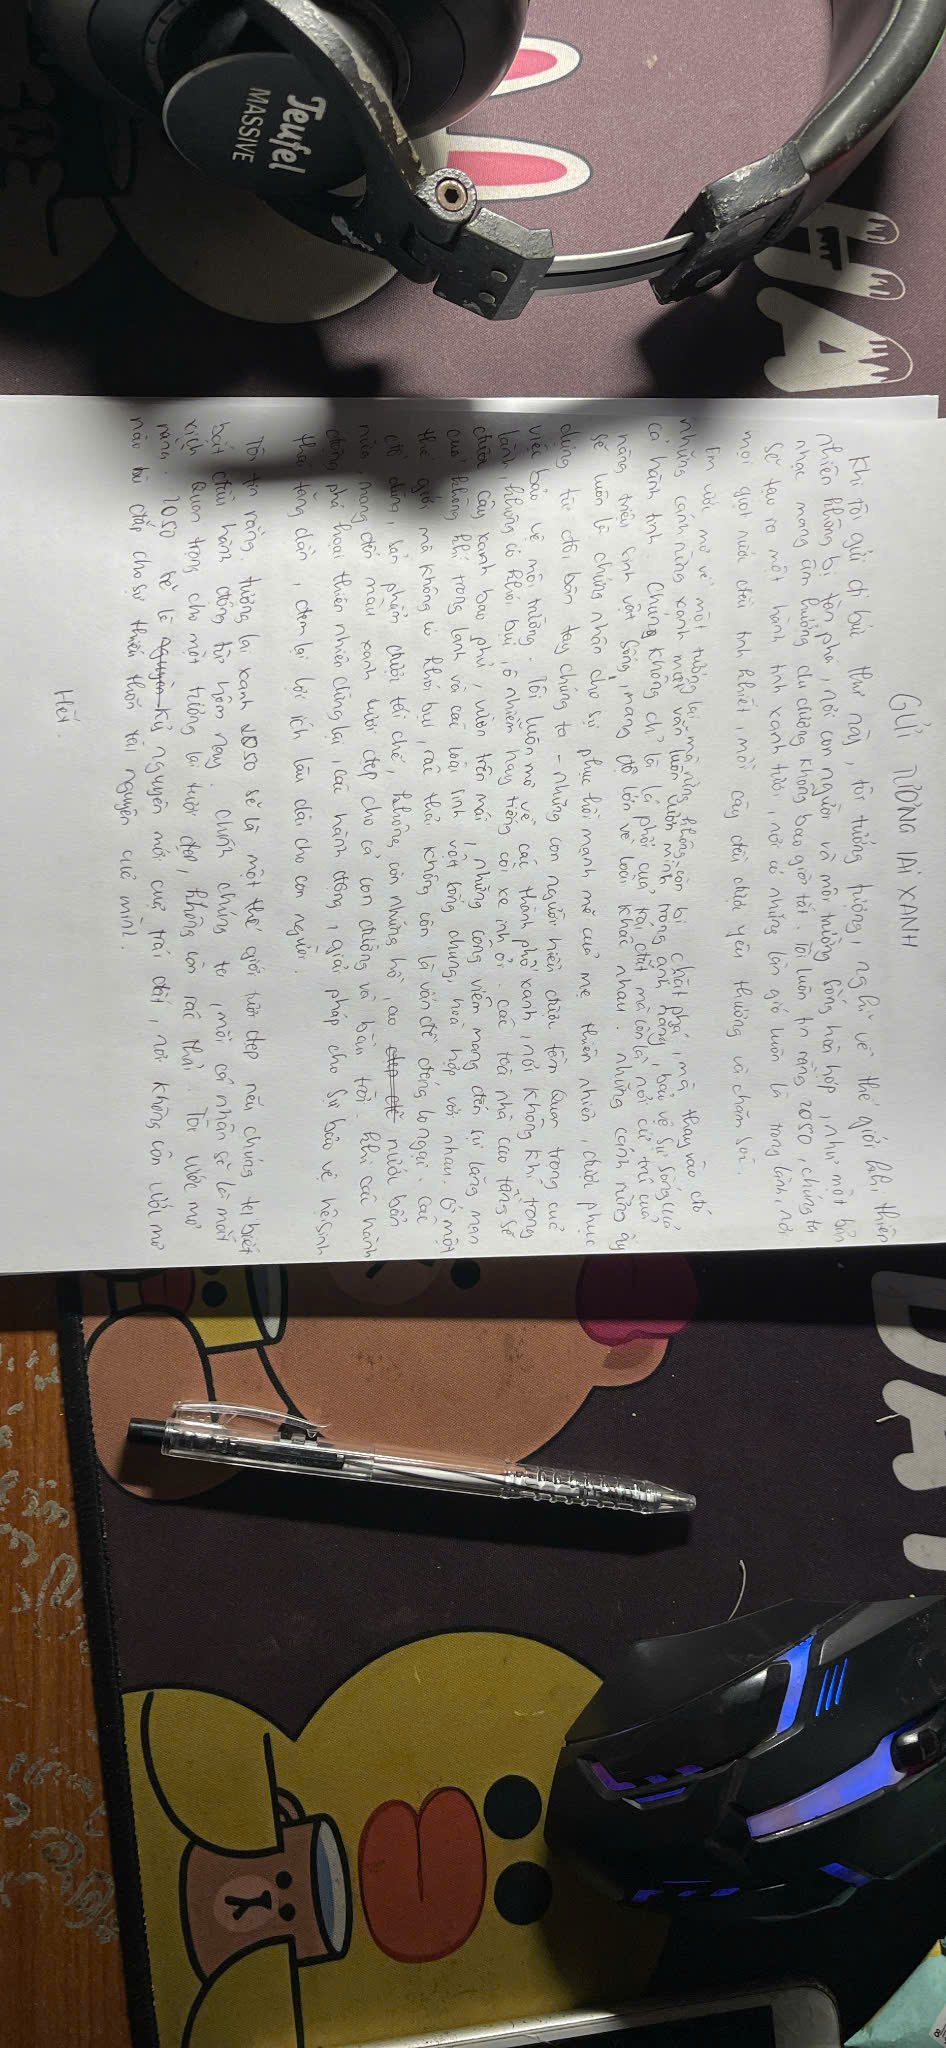 Teufel
MASSIVE
HA
GỬI TƯƠNG LAI XANH
Khi tôi gửi đi bức thư này, tôi tưởng tượng, nghĩ về thế giới khi thiên
nhiên không bị tàn phá, nơi con người và môi trường sống hoà hợp, như một bản
nhạc mang âm hưởng du dương không bao giờ tắt. Tôi luôn tin rằng 2050, chúng ta
sẽ tạo ra một hành tinh xanh tươi, nơi có những làn gió luôn là trong lành, nơi
mọi giọt nước đều tinh khiết, mỗi cây đều được yêu thương và chăm sóc.
Em ước mơ về một tương lai mà rừng không còn bị chặt phá, mà thay vào đó
những cánh rừng xanh mướt vẫn luôn vươn mình trong ánh nắng, bảo vệ sự sống của
cả hành tinh. Chúng không chỉ là lá phổi của trái đất mà còn là nơi cư trú của
hàng triệu sinh vật sống, mang độ lớn về loài khác nhau. Những cánh rừng ấy
sẽ luôn là chứng nhân cho sự phục hồi mạnh mẽ của mẹ thiên nhiên, được phục
dựng từ đôi bàn tay chúng ta - những con người hiểu được tầm quan trọng của
việc bảo vệ môi trường. Tôi luôn mơ về các thành phố xanh, nơi không khí trong
lành, không có khói bụi, ô nhiễm hay tiếng còi xe inh ỏi. Các toà nhà cao tầng sẽ
được cây xanh bao phủ, vườn trên mái, những công viên mang đến sự lãng mạn
của không khí trong lành và các loài sinh vật sống chung, hoà hợp với nhau. Ở một
thế giới mà không có khói bụi, rác thải không còn là vấn đề đáng lo ngại. Các
đồ dùng, sản phẩm được tái chế, không còn những hồ, ao đẹp đẽ nước bẩn
nữa, mang đến màu xanh tươi đẹp cho cả con đường và bầu trời. Khi các hành
động phá hoại thiên nhiên dừng lại, các hành động, giải pháp cho sự bảo vệ hệ sinh
thái tăng dần, đem lại lợi ích lâu dài cho con người.
Tôi tin rằng, tương lai xanh 2050 sẽ là một thế giới tươi đẹp nếu chúng ta biết
bắt đầu hành động từ hôm nay. Chính chúng ta, mỗi cá nhân sẽ là mắt
xích quan trọng cho một tương lai tươi đẹp, không còn rác thải. Tôi ước mơ
rằng 2050 sẽ là nguyên kỷ nguyên mới của trái đất, nơi không còn ước mơ
nào bù đắp cho sự thiếu thốn tài nguyên của mình.
Hết